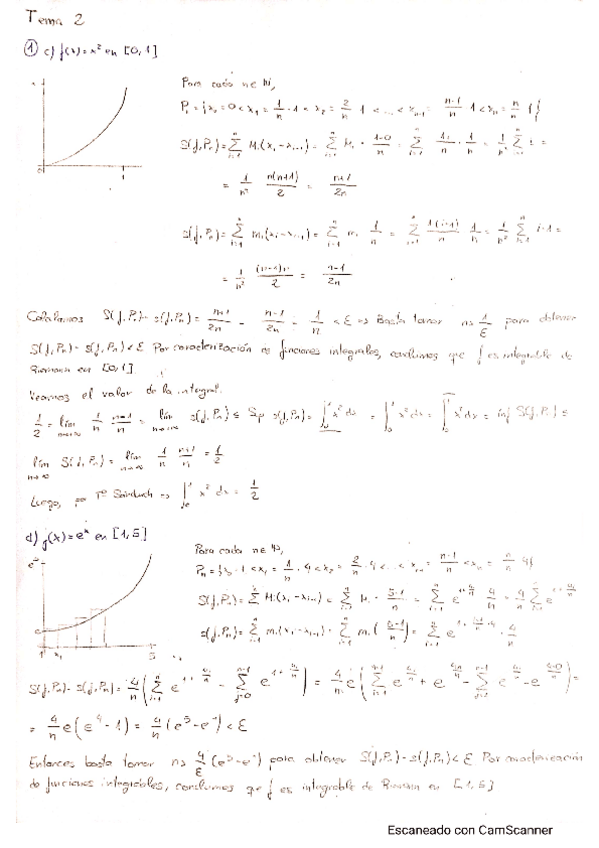 Tema 2
① c) f(x)=x² en [0,1]
Para cada n∈ℕ,
Pₙ={x₀=0<x₁=1/n·1<x₂=2/n·1<...<xₙ₋₁=(n-1)/n·1<xₙ=n/n·1}
S(f,Pₙ)=∑ Mᵢ(xᵢ-xᵢ₋₁)=∑ Mᵢ·(1-0)/n=∑ 1i/n·1/n=1/n² ∑ i=
=1/n² n(n+1)/2=(n+1)/2n
s(f,Pₙ)=∑ mᵢ(xᵢ-xᵢ₋₁)=∑ mᵢ 1/n=∑ 1(i-1)/n 1/n=1/n² ∑ i-1=
=1/n² (n-1)n/2=(n-1)/2n
Calculamos S(f,Pₙ)-s(f,Pₙ)=(n+1)/2n-(n-1)/2n=1/n<ε => Basta tomar n≥1/ε para obtener
S(f,Pₙ)-s(f,Pₙ)<ε Por caracterización de funciones integrables, concluimos que f es integrable de
Riemann en [0,1]
Veamos el valor de la integral.
1/2=lim 1/n (n-1)/n=lim s(f,Pₙ)≤Sup s(f,Pₙ)=∫x²dx=∫x²dx=∫x²dx=inf S(f,Pₙ)≤
lim S(f,Pₙ)=lim 1/n (n+1)/n=1/2
n→∞ n→∞
Luego, por Tª Sandwich => ∫₀¹ x² dx=1/2
d) f(x)=eˣ en [1,5]
Para cada n∈ℕ,
Pₙ={x₀=1<x₁=1/n·4<x₂=2/n·4<...<xₙ₋₁=(n-1)/n<xₙ=n/n·4}
S(f,Pₙ)=∑ Mᵢ(xᵢ-xᵢ₋₁)=∑ Mᵢ·(5-1)/n=∑ e^(1+4i/n) 4/n=4/n ∑ e^(1+4i/n)
s(f,Pₙ)=∑ mᵢ(xᵢ-xᵢ₋₁)=∑ mᵢ((5-1)/n)=∑ e^(1+(4i-4)/n)·4/n
S(f,Pₙ)-s(f,Pₙ)=4/n(∑ e^(1+4i/n)-∑ e^(1+4i/n))=4/n e(∑ e^(4i/n)+e^(4n/n)-∑ e^(4i/n)-e^(4·0/n))=
=4/n e(e⁴-1)=4/n(e⁵-e¹)<ε
Entonces basta tomar n≥4/ε(e⁵-e¹) para obtener S(f,Pₙ)-s(f,Pₙ)<ε Por caracterización
de funciones integrables, concluimos que f es integrable de Riemann en [1,5]
Escaneado con CamScanner